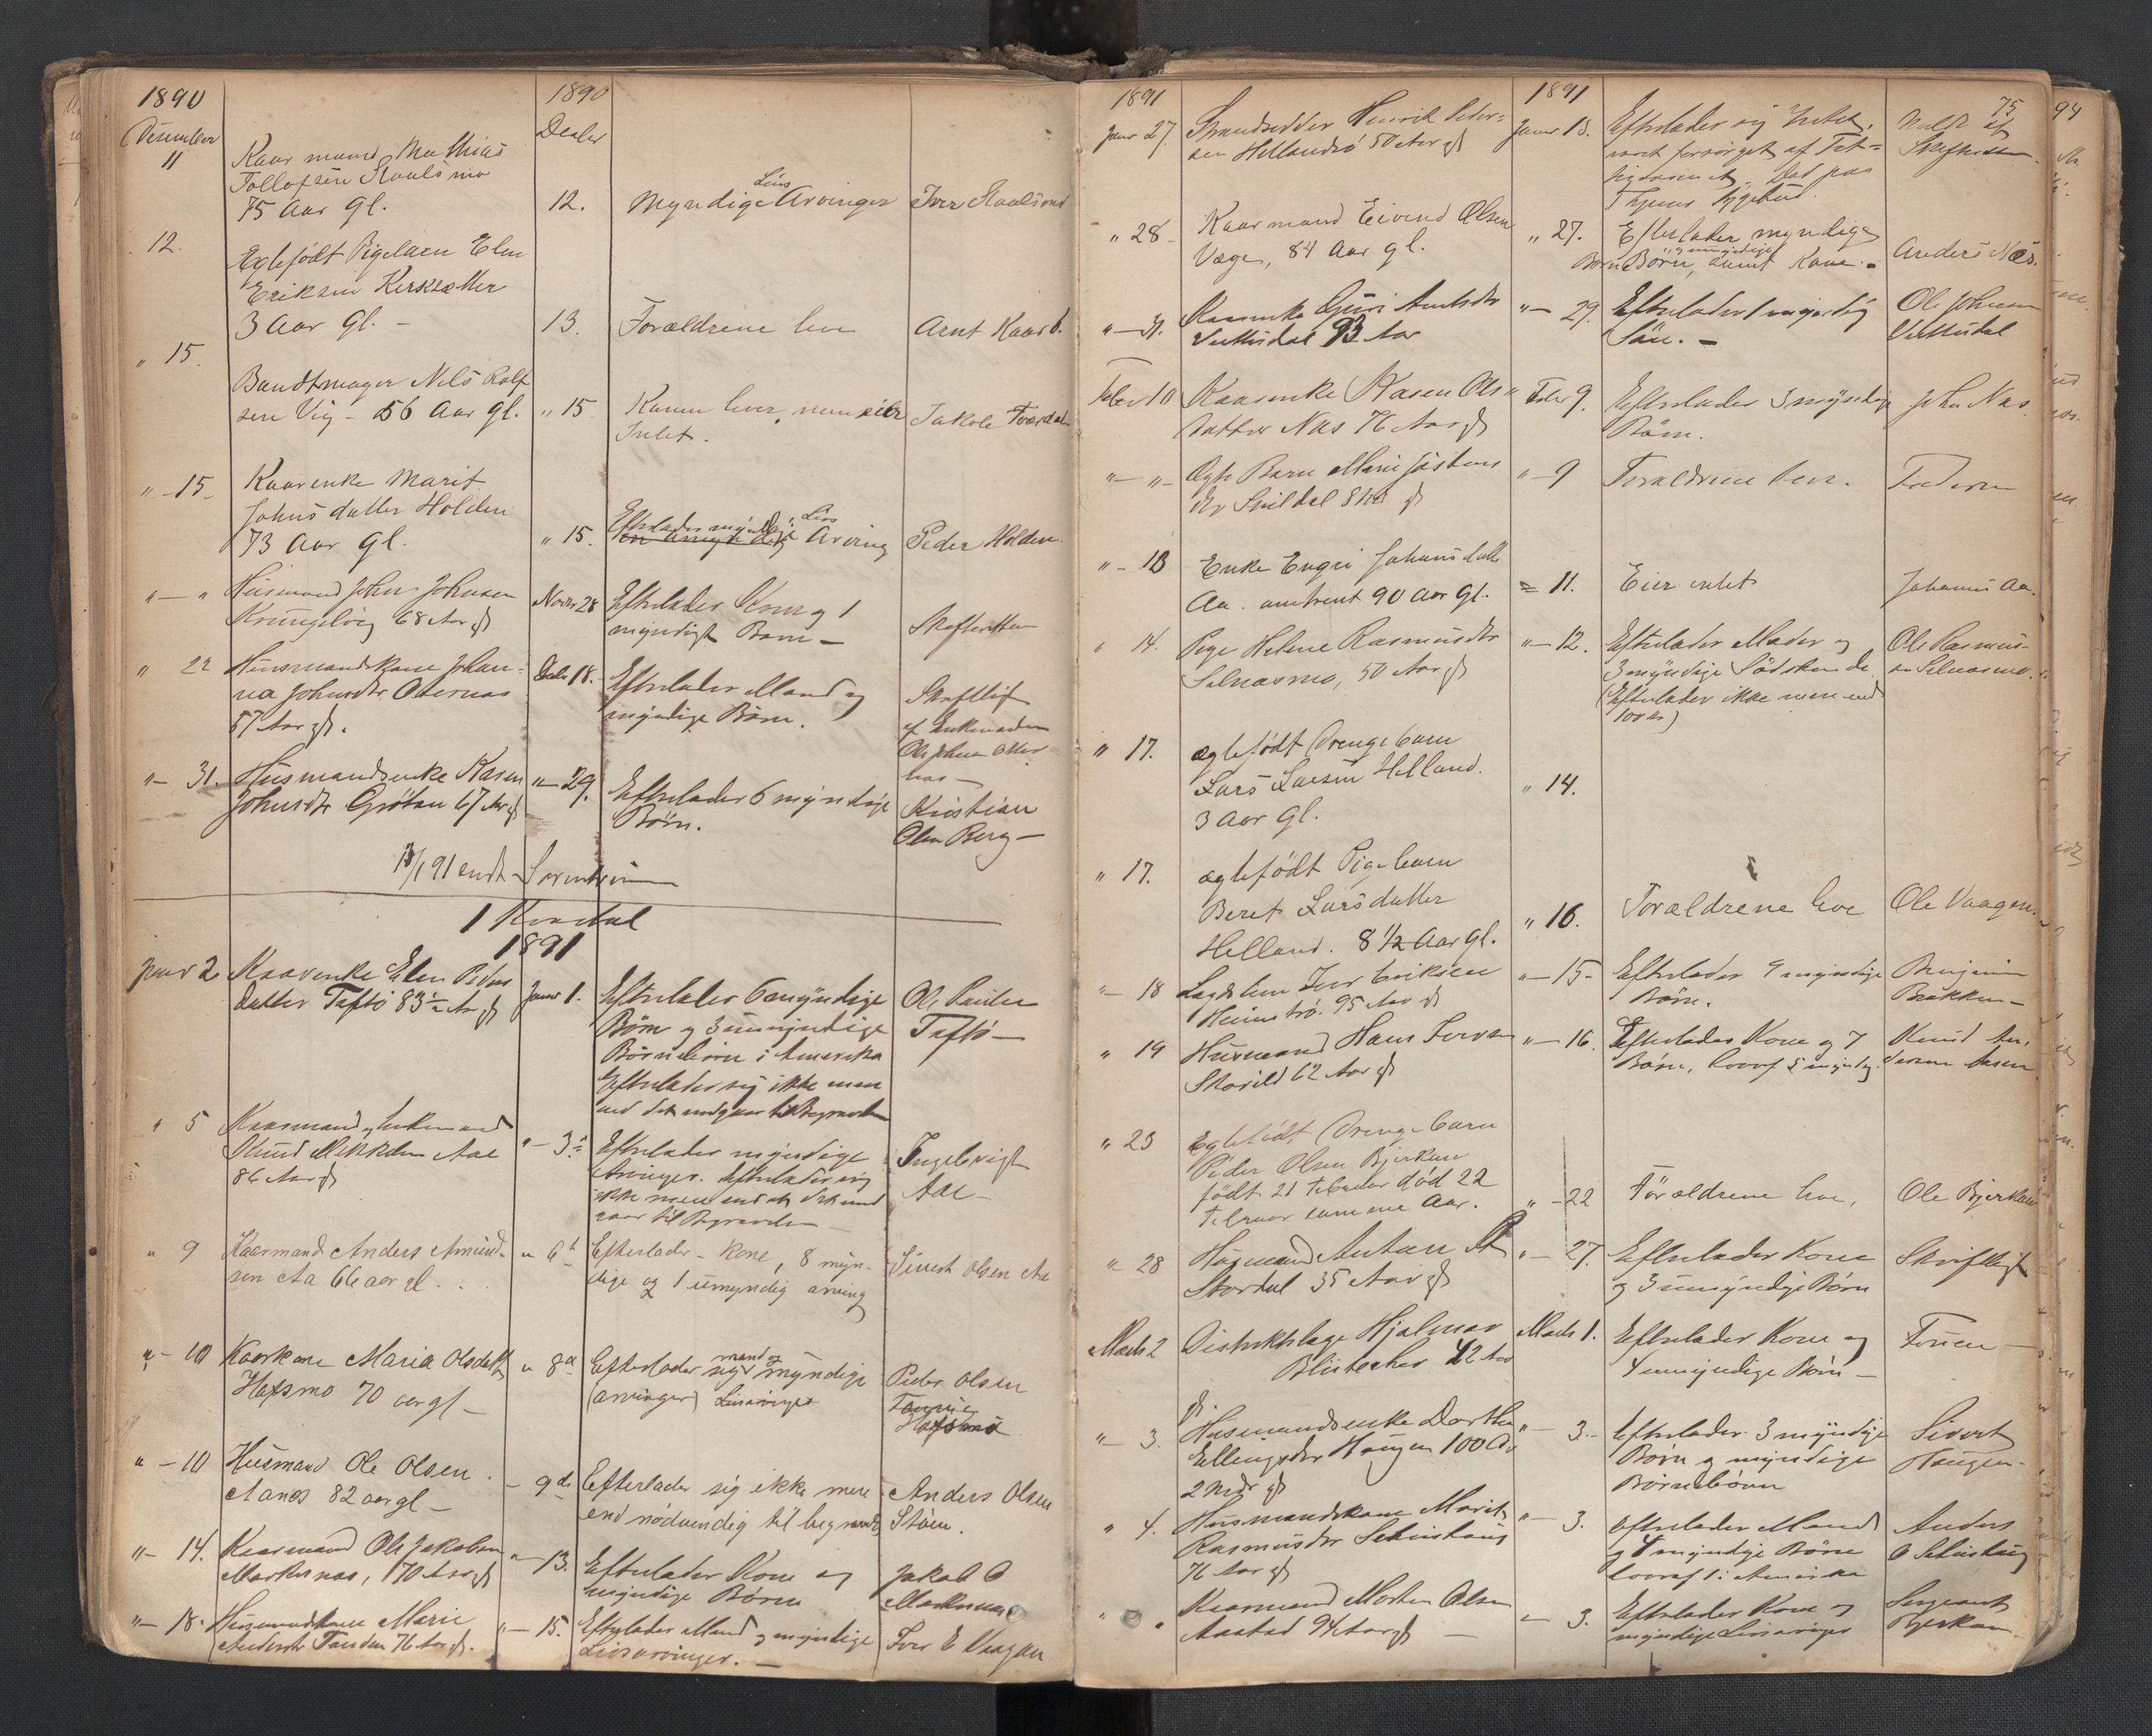 1890
1890
Desember
Decbr
11
Kaarmand Mathias
Tollefsen Staalsmo
75 Aar gl.
12.
Myndige Livs Arvinger
Iver Staalsmo
12.
Egtefödt Pigebarn Elen
Eriksen Kirksæther
3 Aar gl. –
13.
Forældrene leve
Arnt Kaar
" 15.
Bundtmager Nils Rolf
sen Vig – 56 Aar gl.
" 15
Konen lever, men eier
Intet.
Jakob
" – 15 –
Kaarenke Marit
Johns datter Holden
73 Aar gl.
" 15.
Efterlader myndige Livs
Arving
Peder Holden
" – "
Husmand John Johnsen
Krungelvig 68 Aar gl
Novbr 28
Efterlader Kone og 1
myndigt Barn –
Skifteretten
" 22
Husmandskone Johan-
na Johnsdtr
57 Aar gl.
Decbr 18.
Efterlader Mand og
myndige Börn.
Skriftlig
af Enkemanden
Ole Johnsen
" – 31.
Husmandsenke Karen
Johnsdtr Grötan 67 Aar gl
" – 29.
Efterlader 6 myndige
Börn.
Kristian
Olsen Berg –
1 Kvartal
1891
Janr 2
Kaarenke Elen Peders
datter Taftö 83½ Aar gl
Janr 1.
Efterlader 6 myndige
Börn og 3 umyndige
Börnebörn i Amerika
Efterlader sig ikke mere
end det medgaar til Begravelse
Ole Paulsen
Taftö –
" 5
Kaarmand og Enkemand
Knud Mikkelsen Aae
86 Aar gl
" – 3
Efterlader myndige
Arvinger. Efterlader sig
ikke mere end at det med
gaar til Begravelsen –
Ingebrigt
Aae –
" 9
Kaarmand Anders Amund-
sen Aa 66 aar gl.
" 6
Efterlader – Kone, 8 myn-
dige og 1 umyndig arving
Sivert Olsen Aa
" – 10
Kaarkone Maria Olsdatt
Hafsmo 70 aar gl –
" 8
Efterlader sig mand og myndige
(arvinger) Livsarvinger
Peder Olsen
Hafsmo
" – 10
Husmand Ole Olsen
Aanes 82 aar gl –
– 9de
Efterlader sig ikke mere
end nödvendig til begravelse
Anders Olsen
Stöen.
" – 14.
Kaarmand Ole Jakobsen
Markusnæs, 70 Aar gl
" – 13.
Efterlader Kone og
myndige Börn
Jakob O
" – 18.
Husmandskone Marie
Andersdtr Tanden 76 Aar gl.
" – 15.
Efterlader Mand og myndige
Livsarvinger. –
Iver E Vaagan
1891
1891
75
Janr 27.
Strandsidder Henrik Peder-
sen Hellandsö 50 Aar gl
Janr 18.
Efterlader sig Intet,
været forsörget af Fat-
tigvæsenet. Död paa
Sygehus.
Meldt af
Skifteretten
" 28
Kaarmand Eivend Olsen
Væge, 84 Aar gl.
" 27.
Efterlader myndige
Börn, samt Kone.
Anders Næs.
" – 31.
Kaarenke Guri Arntsdtr
93 Aar
" – 29.
Efterlader 1 myndig
Sön. –
Ole Johnsen
Febr 10
Kaarenke Karen Ols
datter Næs 76 Aar gl
Febr 9.
Efterlader 3 myndige
Börn.
John Næs
" – "
Ægte Barn Marie
" – 9
Forældrene leve.
Faderen
" – 13
Enke Engri Johansdatter
Aa. omtrent 90 Aar gl.
" 11.
Eier intet
Johannes Aa.
" 14.
Pige Helene Rasmusdtr
Selnæsmo, 50 Aar gl
" – 12.
Efterlader Moder og
3 myndige Södskende
(Efterlader ikke mere end
100 kr)
Ole Rasmus-
sen Selnæsmo.
" 17.
ægtefödt Drengebarn
Lars Larsen Helland.
3 Aar gl.
" 14.
" 17.
ægtefödt Pigebarn
Beret Larsdatter
Helland. 8½ Aar gl.
" 16.
Forældrene leve
Ole Vaagen.
" – 18
Lægdslem Iver Eriksen
95 Aar gl
" – 15 –
Efterlader 9 myndige
Börn.
Benjamin
Bækken –
" 19
Husmand Hans Iversen
Skorild 62 Aar gl
" – 16.
Efterlader Kone og 7
Börn, hvoraf 5 myndig.
Knud An-
" 23
Egtefödt Drengebarn
Peder Olsen Bjerkan
födt 21 Februar död 22
Februar samme Aar.
" – 22
Forældrene leve,
Ole Bjerkan
" 28
Husmand Antan
Stordal 35 Aar gl
" – 27.
Efterlader Kone
og 3 umyndige Börn
Skriftligt
Marts 2
Distriktslæge Hjalmar
42 Aar
gl.
Marts 1.
Efterlader Kone og
4 umyndige Börn –
Fruen –
" – 3.
Husmandsenke Dorthe
Ellingsdtr Haugen 100 Aar
2 Mdr gl
" – 3.
Efterlader 3 myndige
Börn og myndige
Börnebörn
Sivert
Haugen –
" 4.
Husmandskone Marit
Rasmusdtr
76 Aar gl
" – 3.
Efterlader Mand
og 4 myndige Börn
hvoraf 1 i Amerika
Anders
" "
Kaarmand Morten Olsen
Aastad 94 Aar gl –
– 3.
Efterlader Kone og
myndige Livsarvinger
Sergeant
Bjerkan
94